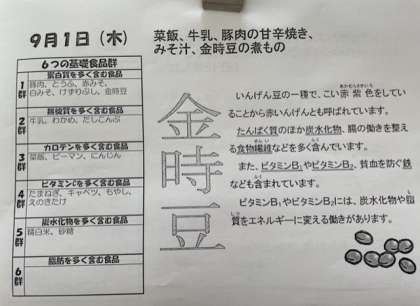 9月1日（木）
菜飯、牛乳、豚肉の甘辛焼き、
みそ汁、金時豆の煮もの
6つの基礎食品群
蛋白質を多く含む食品
1群
豚肉、とうふ、赤みそ、
白みそ、けずりぶし、金時豆
無機質を多く含む食品
2群
牛乳、わかめ、だしこんぶ
カロテンを多く含む食品
3群
菜飯、ピーマン、にんじん
ビタミンCを多く含む食品
4群
たまねぎ、キャベツ、もやし、
えのきたけ
炭水化物を多く含む食品
5群
精白米、砂糖
脂肪を多く含む食品
6群
金時豆
いんげん豆の一種で、こい赤紫色をしてい
ることから赤いんげんとも呼ばれています。
たんぱく質のほか炭水化物、腸の働きを整え
る食物繊維などを多く含んでいます。
また、ビタミンB₁やビタミンB₂、貧血を防ぐ鉄
なども含まれています。
ビタミンB₁やビタミンB₂には、炭水化物や脂
質をエネルギーに変える働きがあります。